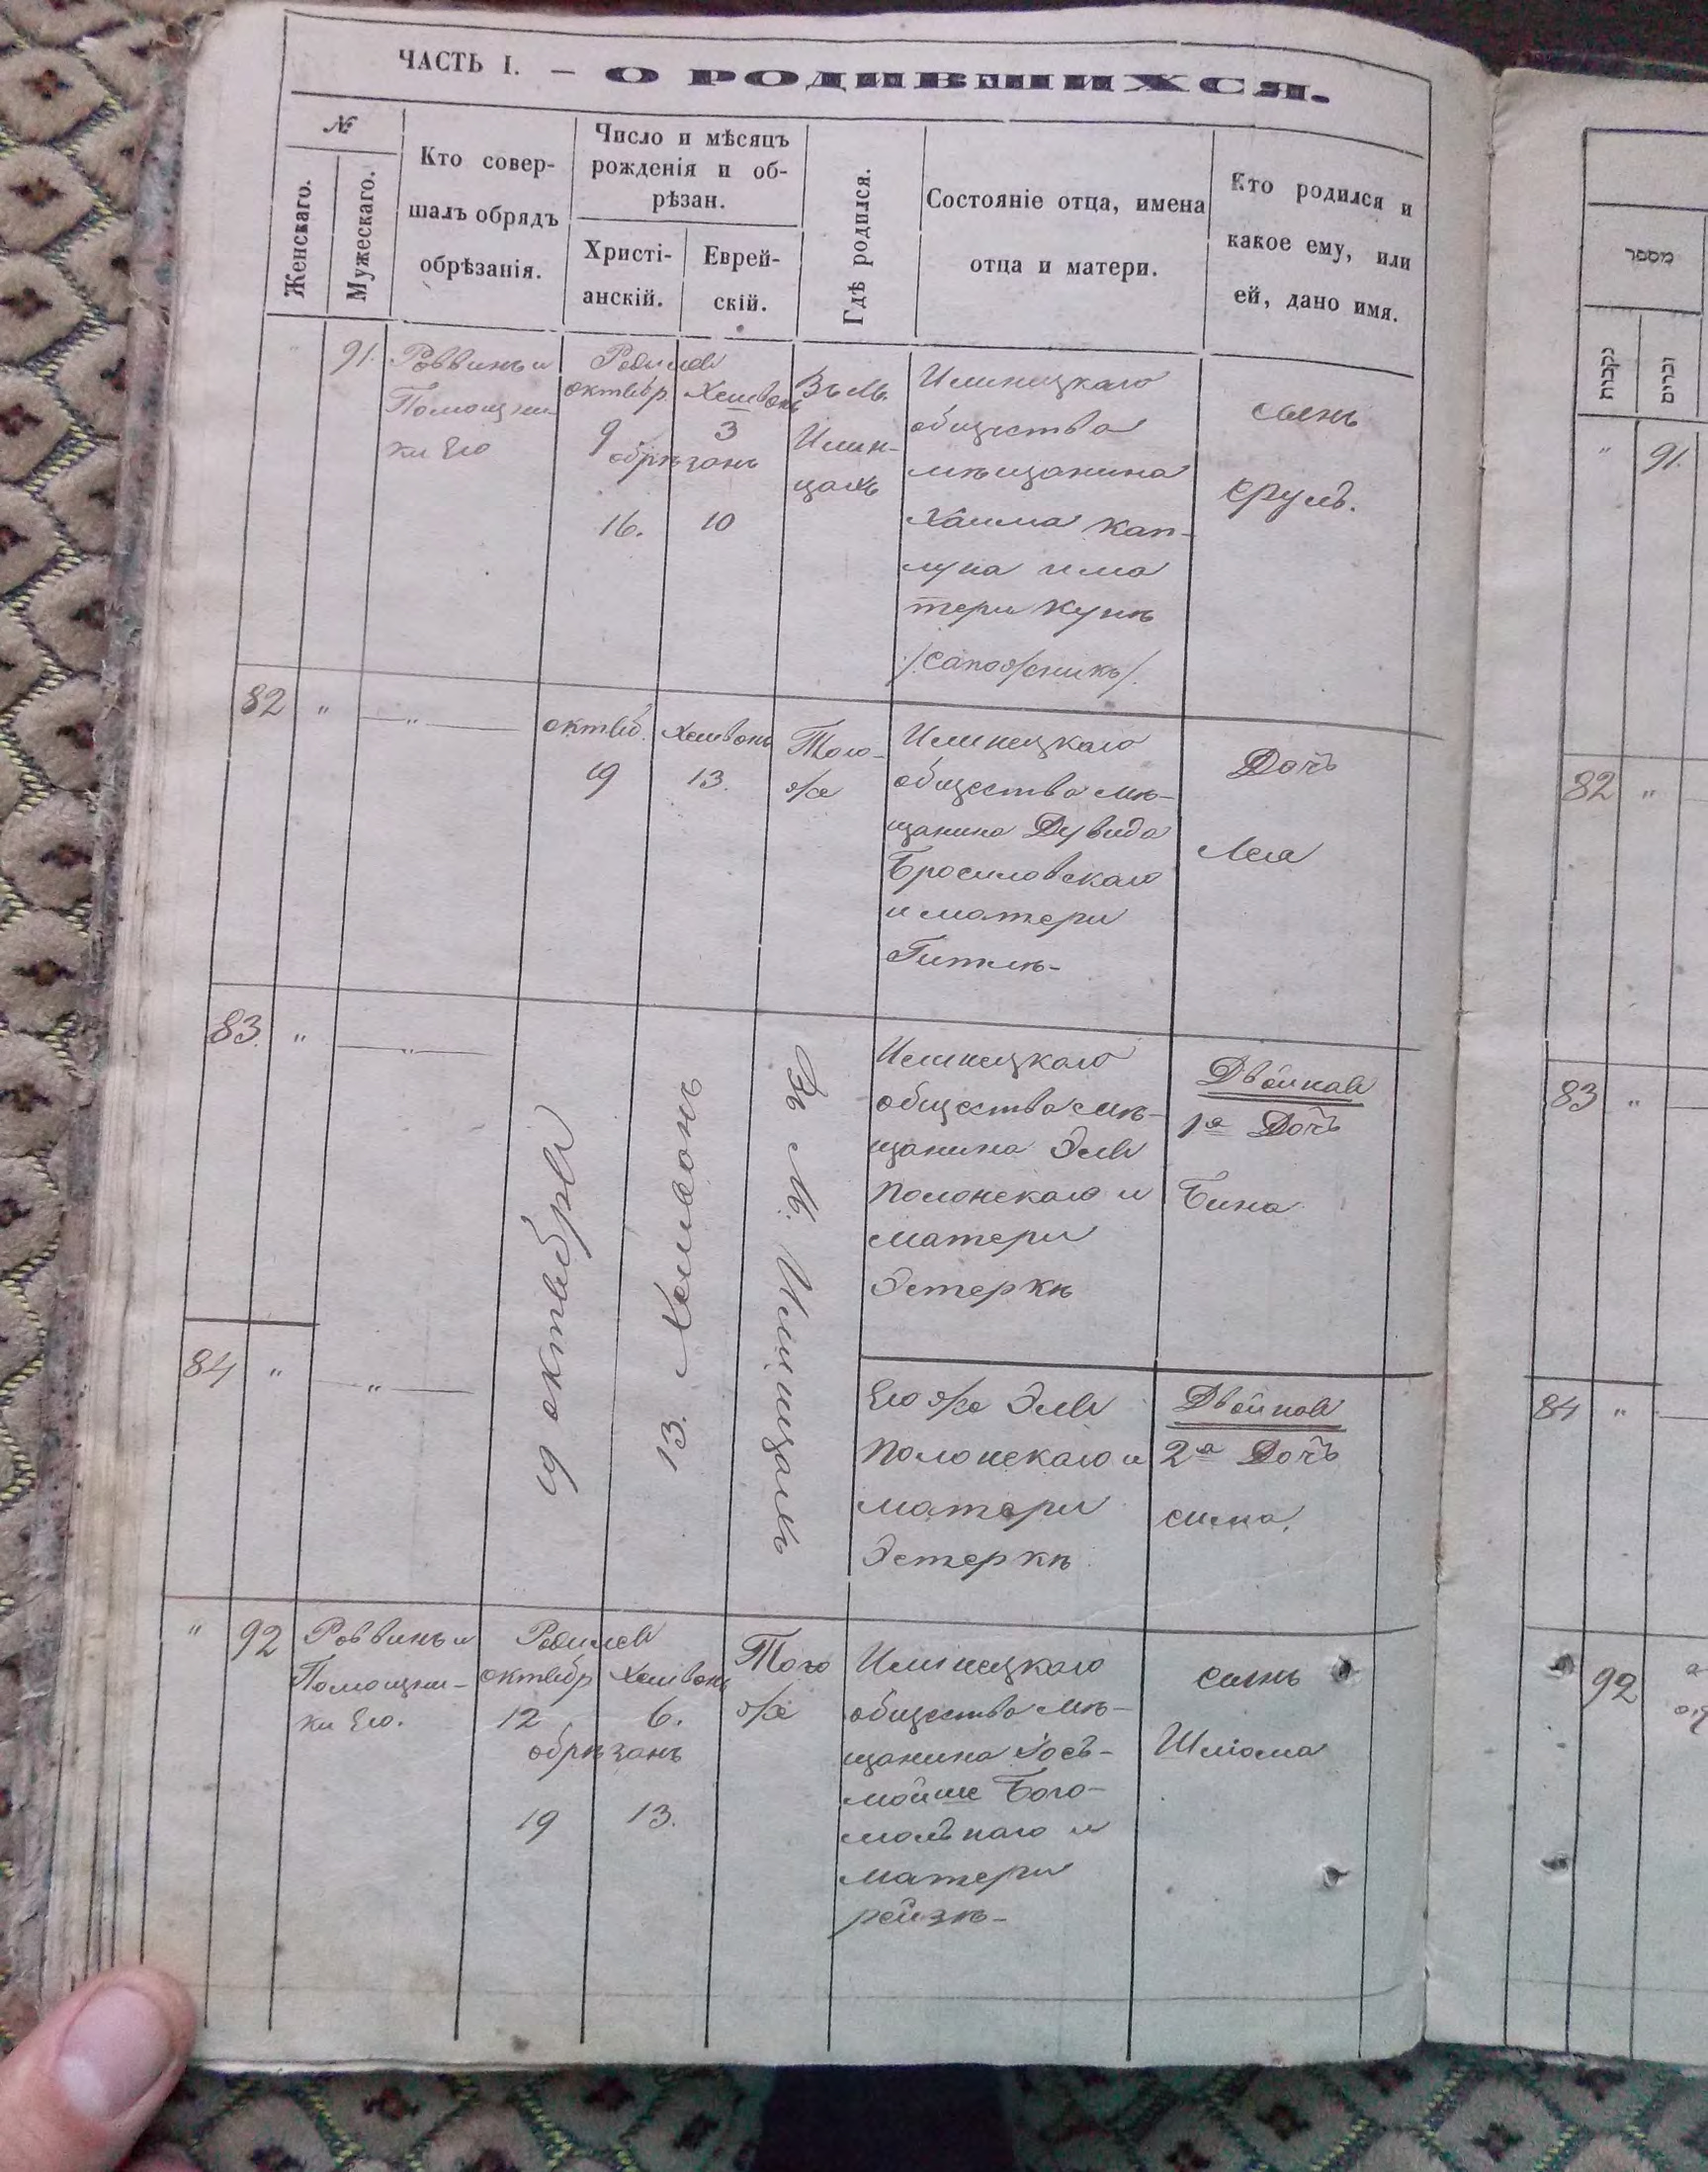 ЧАСТЬ I. — О РОДИВШИХСЯ.
№
Женскаго.
Мужескаго.
Кто совер-
шалъ обрядъ
обрѣзанія.
Число и мѣсяцъ
рожденія и об-
рѣзан.
Христі-
анскій.
Еврей-
скій.
Гдѣ родился.
Состояніе отца, имена
отца и матери.
Кто родился и
какое ему, или
ей, дано имя.
" 91.
Раввинъ и
Помощни-
ки Его
Родился
октябр. Хешвонъ
9 3
обрѣзанъ
16. 10
Въ м.
Илин-
цахъ
Илинецкаго
общества
мѣщанина
Хаима Кап-
луна и ма
тери Кунѣ
/Сапожникъ/.
сынъ
Срулъ.
82 " — " —
октяб. Хешвонъ
19 13.
Того-
же
Илинецкаго
общества мѣ-
щанина Дувида
Бросиловскаго
и матери
Гитлѣ-
Дочь
Лея
83. " — " —
19 октября
13. Хешвонъ
В М. Илинцахъ
Илинецкаго
общества мѣ-
щанина Эля
Полонскаго и
матери
Эстеркѣ
Двойная
1я Дочь
Бина
84 " — " —
Его же Эля
Полонскаго и
матери
Эстеркѣ
Двойная
2я Дочь
сима.
" 92
Раввинъ и
Помощни-
ки Его.
Родился
октябр Хешвонъ
12 6.
обрѣзанъ
19 13.
Того
же
Илинецкаго
общества мѣ-
щанина Іосъ-
мойше Бого-
мольнаго и
матери
рейзѣ-
сынъ
Шліома
מספר
נקבות
זכרים
" 91.
82 "
83 "
84 "
92